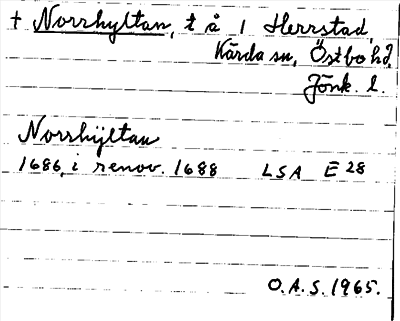 † Norrhyltan, t å 1 Herrstad,
Kärda sn, Östbo hd,
Jönk. l.
Norrhijltan
1686, i renov. 1688 LSA E 28
O.A.S. 1965.